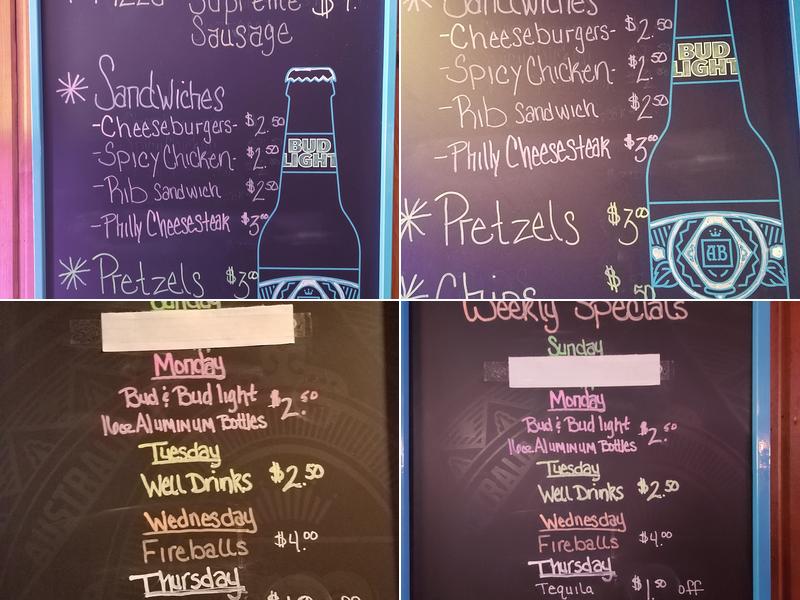 Pizza Supreme $
Sausage
* Sandwiches
-Cheeseburgers- $2.50
-Spicy Chicken- $2.50
-Rib Sandwich $2.50
-Philly Cheesesteak $3.00
* Pretzels $3.00
BUD
LIGHT
Sandwiches
-Cheeseburgers- $2.50
-Spicy Chicken- $2.50
-Rib Sandwich $2.50
-Philly Cheesesteak $3.00
* Pretzels $3.00
* Chips $
BUD
LIGHT
AB
Sunday
Monday
Bud & Bud light $2.50
16oz Aluminum Bottles
Tuesday
Well Drinks $2.50
Wednesday
Fireballs $4.00
Thursday
Weekly Specials
Sunday
Monday
Bud & Bud light $2.50
16oz Aluminum Bottles
Tuesday
Well Drinks $2.50
Wednesday
Fireballs $4.00
Thursday
Tequila $1.50 off